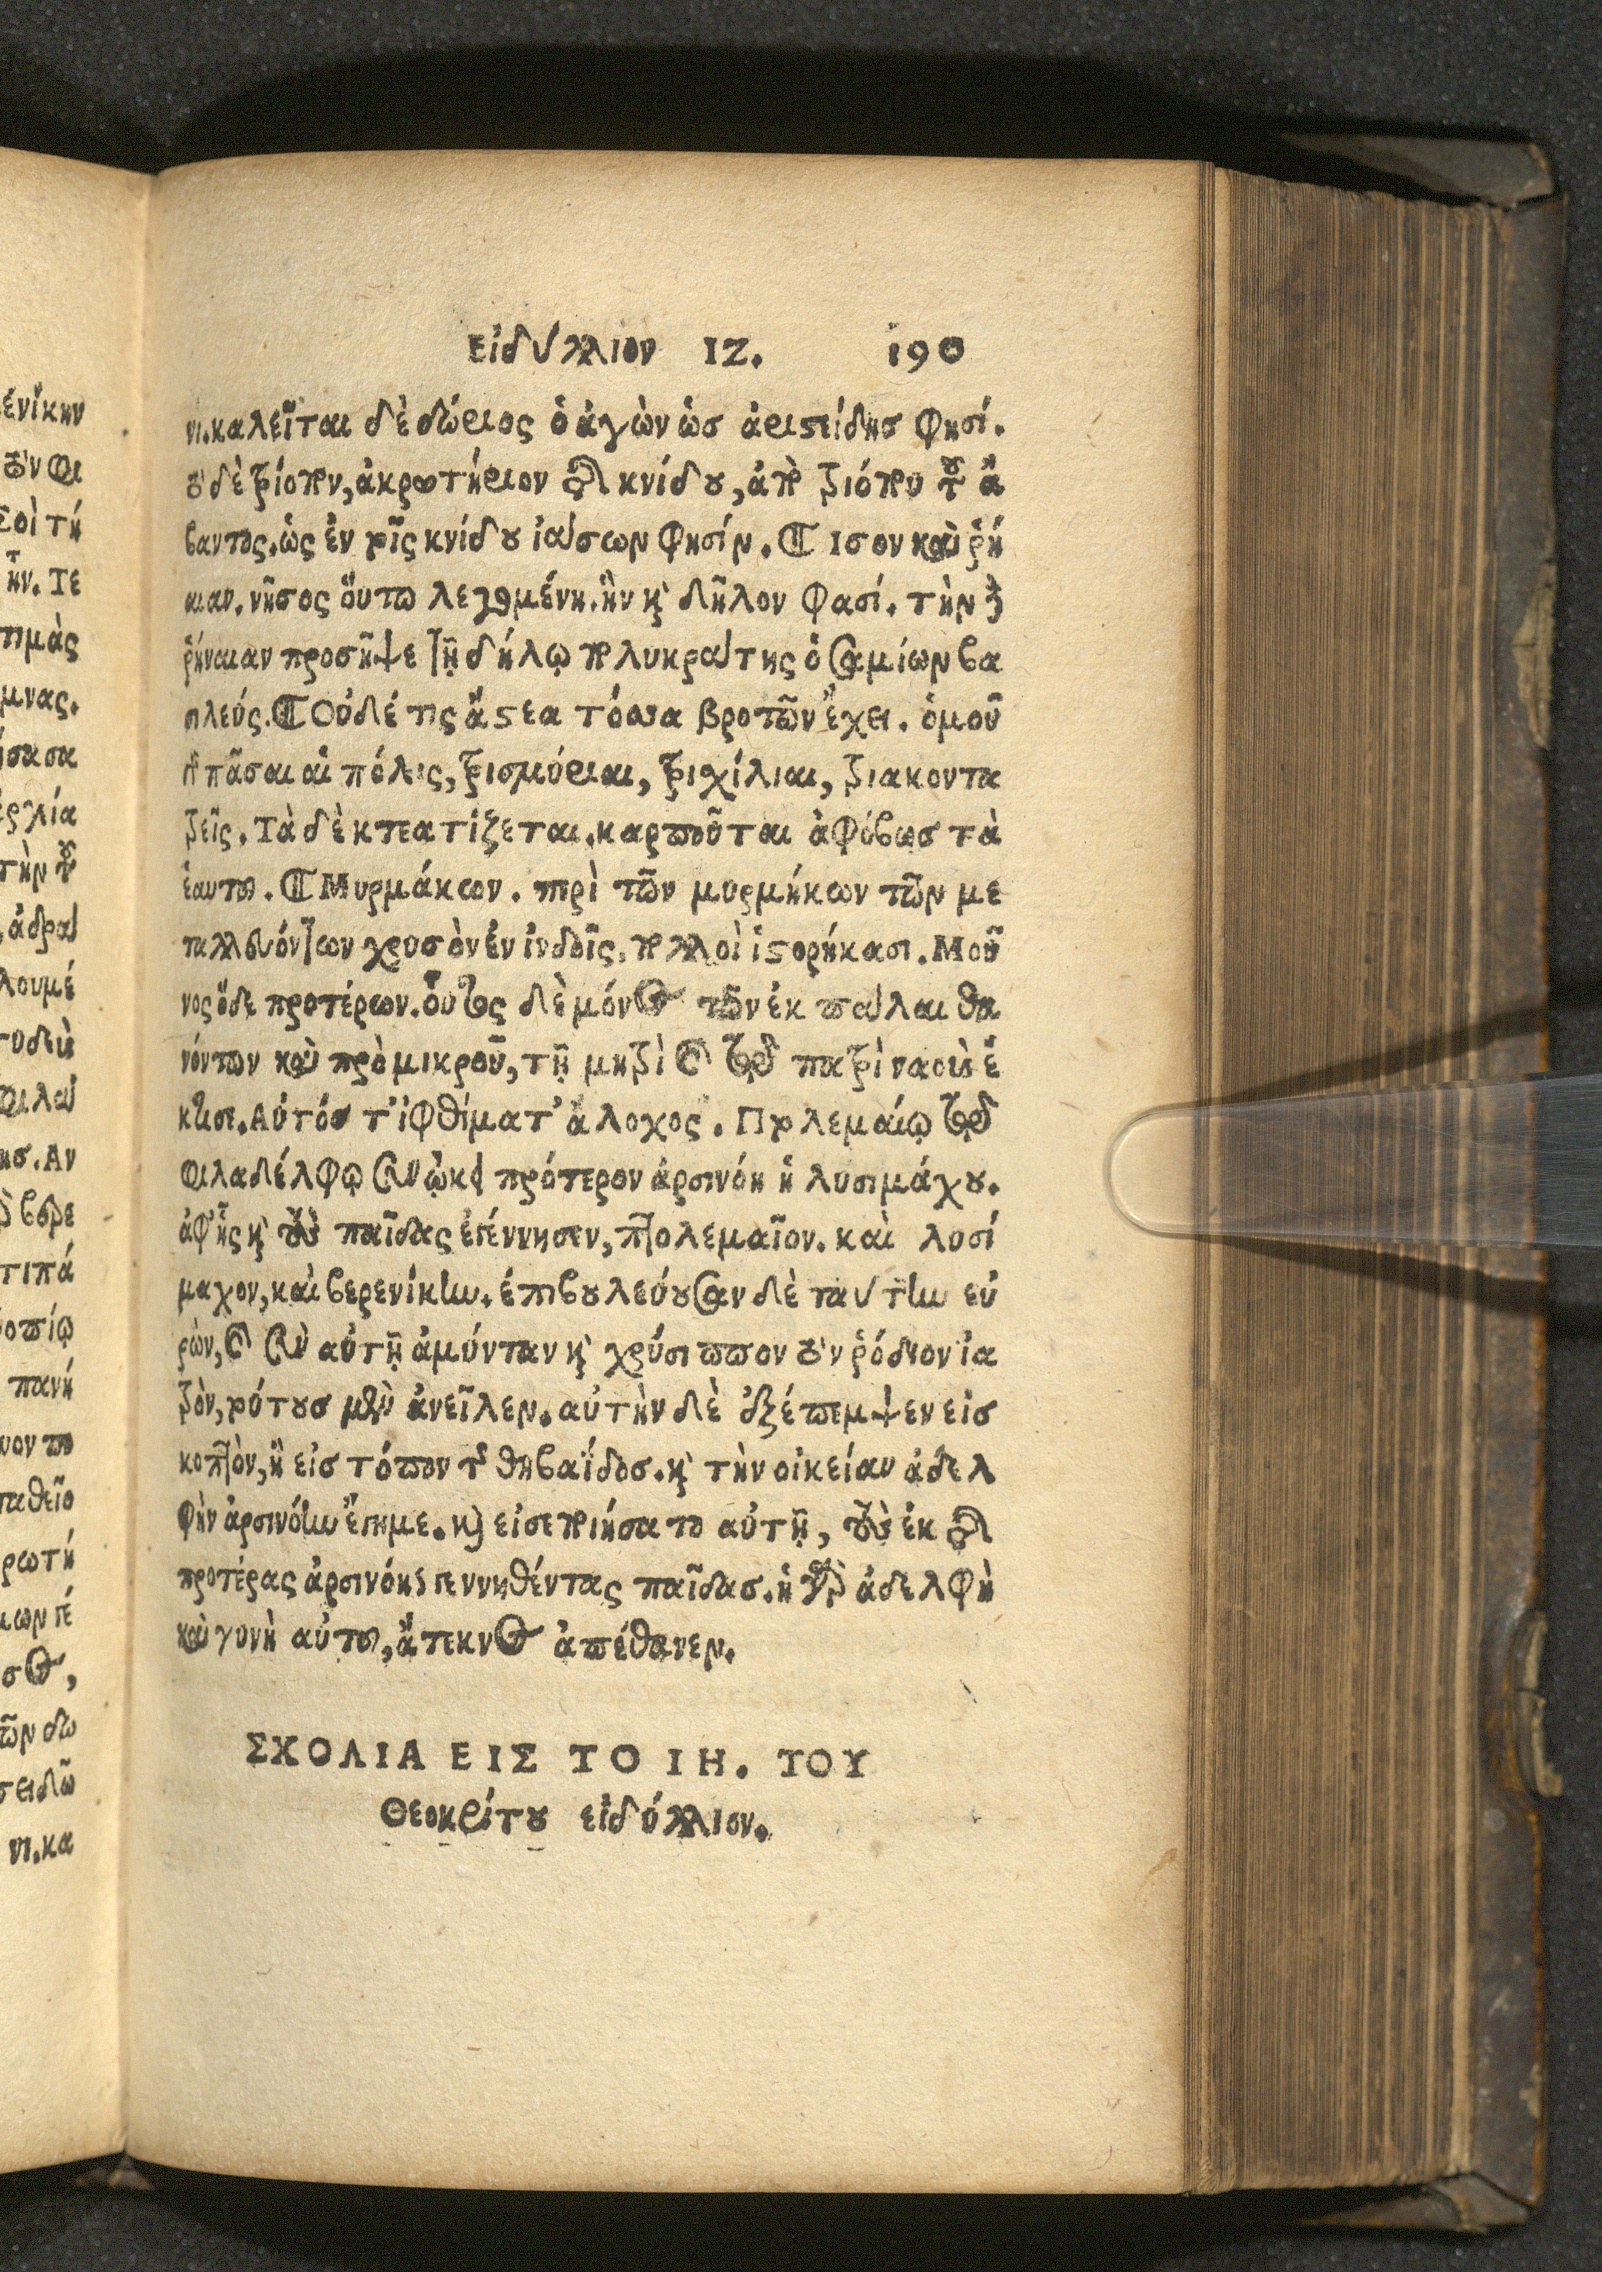 εἰδύλλιον ΙΖ. 190
νι.καλεῖται δὲ δώριος ὁ ἀγὼν ὡσ ἀριστείδησ φησί.
οὐδὲ τρίοπον, ἀκρωτήριον τῆς κνίδου, ἀπὸ τριόπου τοῦ ἄ
βαντος. ὡς ἐν τοῖς κνίδου ἰάσων φησίν. ¶ Ισον καὶ ῥή
αιαν. νῆσος οὕτω λεγομένη. ἣν καὶ δῆλον φασί. τὴν δὲ
ῥήναιαν προσῆψε τῇ δήλῳ πολυκράτης ὁ σαμίων βα
σιλεύς. ¶ Οὐδέ τις ἄστεα τόσσα βροτῶν ἔχει. ὁμοῦ
πᾶσαι αἱ πόλις, τρισμύριαι, τρισχίλιαι, τριακοντα
τρεῖς. Τὰ δὲ κτεατίζεται. καρποῦται ἀφόβωσ τὰ
ἑαυτοῦ. ¶ Μυρμάκων. περὶ τῶν μυρμήκων τῶν με
ταλλευόντων χρυσὸν ἐν ἰνδοῖς. πολλοὶ ἱστορήκασι. Μοῦ
νος ὅδε προτέρων. οὗτος δὲ μόνος τῶν ἐκ πάλαι θα
νόντων καὶ πρὸ μικροῦ, τῇ μητρὶ καὶ τῷ πατρὶ ναοὺς ἔ
κτισε. Αὐτόσ τ' ἰφθίματ' ἄλοχος. Πτολεμαίῳ τῷ
φιλαδέλφῳ συνῴκει πρότερον ἀρσινόη ἡ λυσιμάχου.
ἀφ' ἧς καὶ τοὺς παῖδας ἐγέννησεν, πτολεμαῖον. καὶ λυσί
μαχον, καὶ βερενίκην. ἐπιβουλεύουσαν δὲ ταύτην εὑ
ρὼν, καὶ σὺν αὐτῇ ἀμύνταν καὶ χρύσιππον τὸν ῥόδιον ἰα
τρὸν, τούτουσ μὲν ἀνεῖλεν. αὐτὴν δὲ ἐξέπεμψεν εἰσ
κοπτὸν, ἢ εἰσ τόπον τῆς θηβαΐδοσ. καὶ τὴν οἰκείαν ἀδελ
φὴν ἀρσινόην ἔγημε. καὶ εἰσεποιήσατο αὐτῇ, τοὺς ἐκ τῆς
προτέρας ἀρσινόης γεννηθέντας παῖδασ. ἡ γὰρ ἀδελφὴ
καὶ γυνὴ αὐτοῦ, ἄτεκνος ἀπέθανεν.
ΣΧΟΛΙΑ ΕΙΣ ΤΟ ΙΗ. ΤΟΥ
Θεοκρίτου εἰδύλλιον.